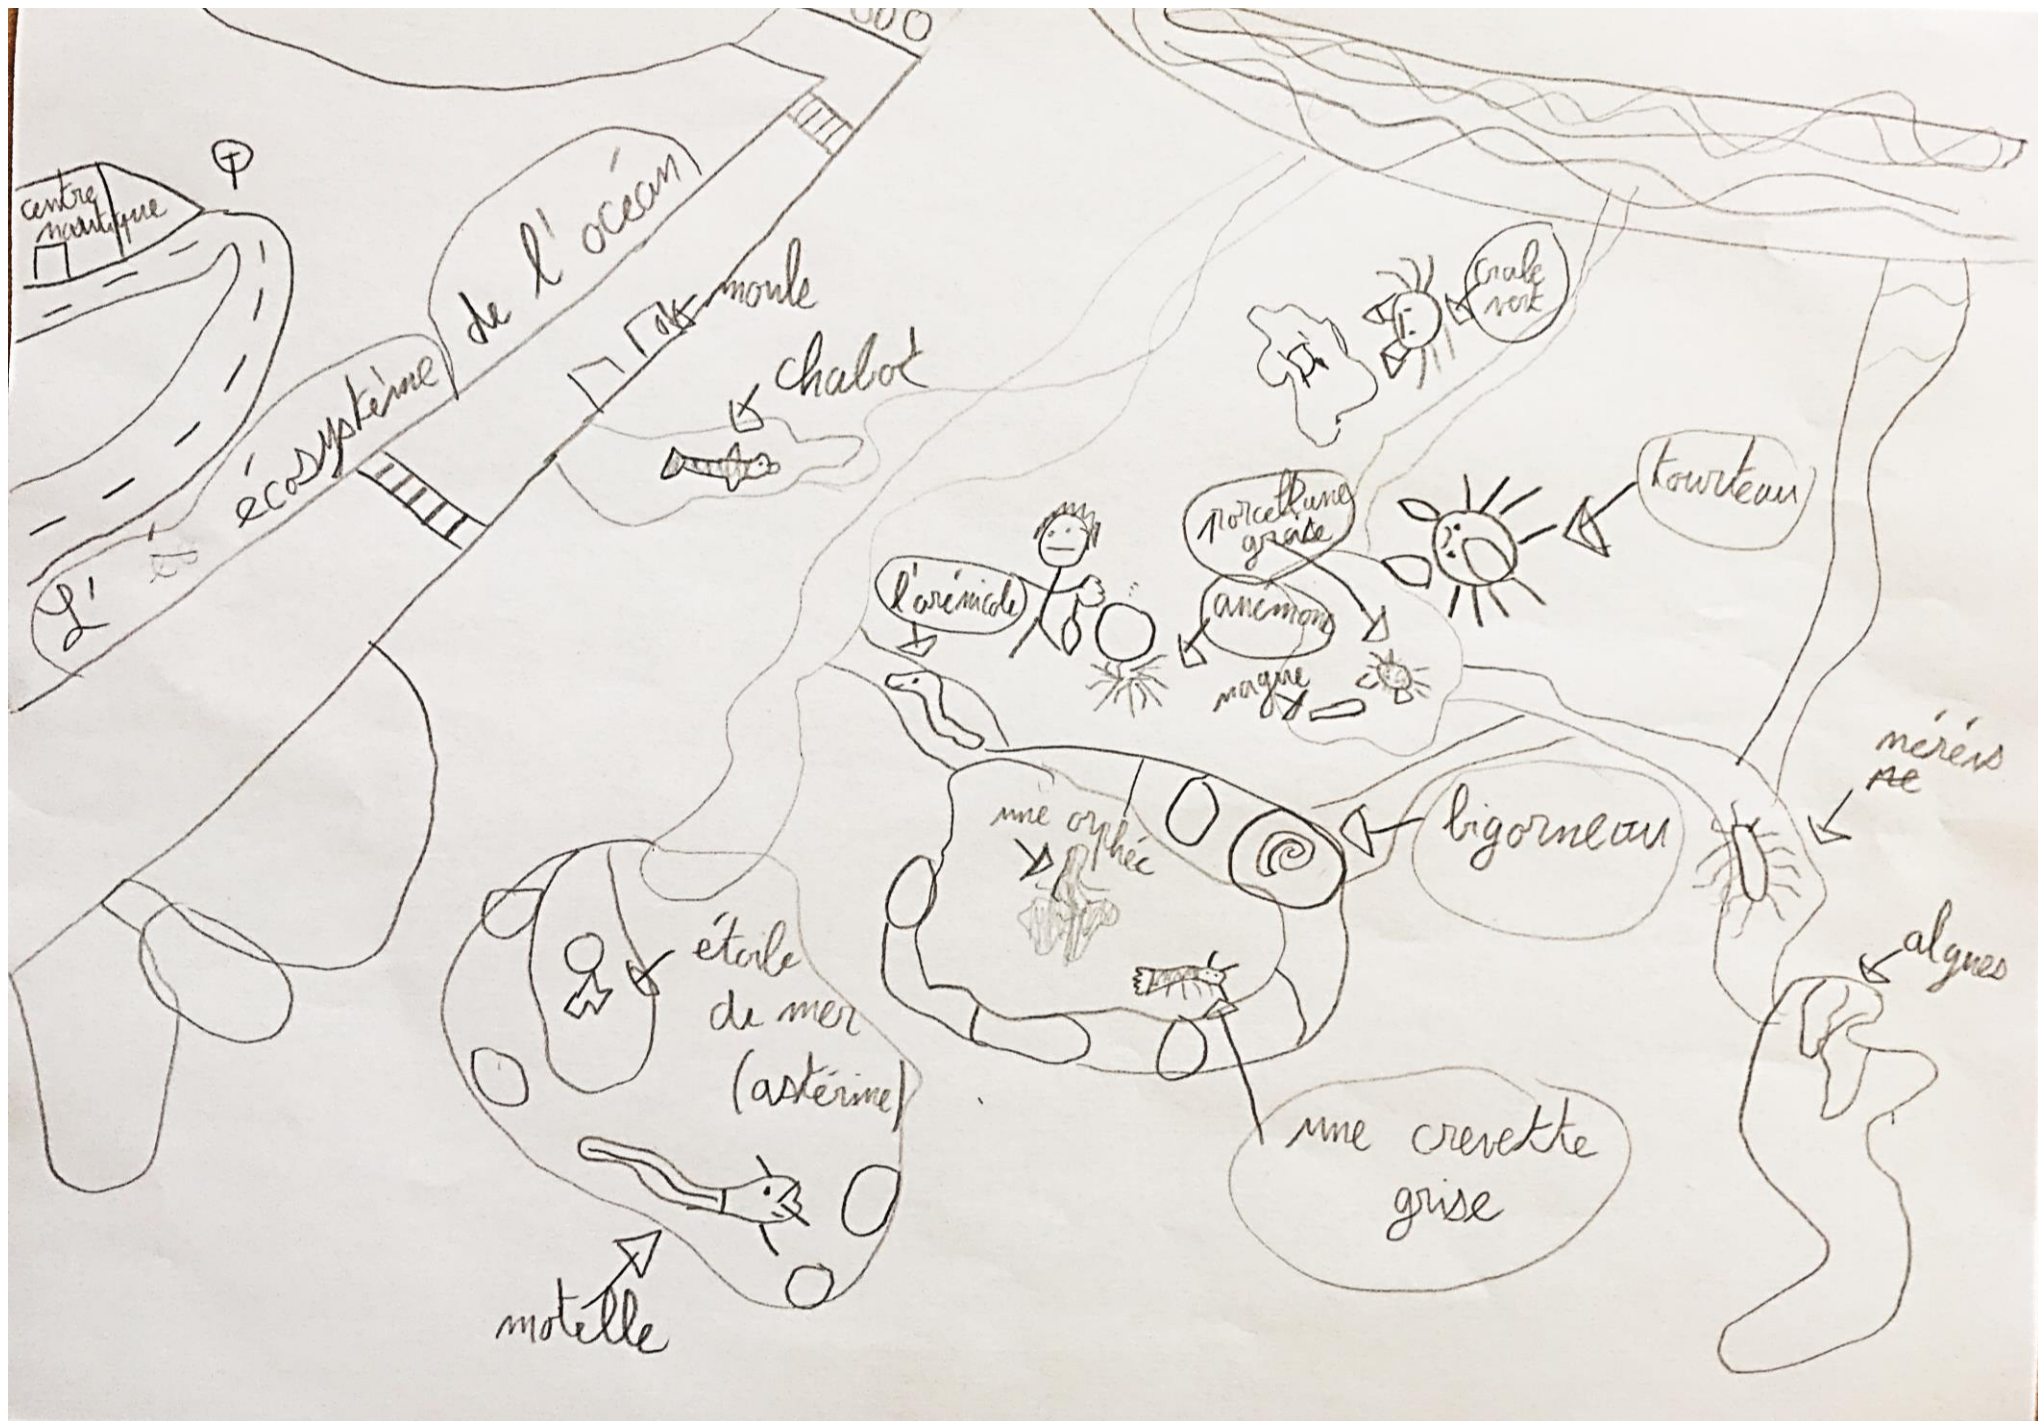 centre
nautique
L'écosystème de l'océan
moule
chabot
crabe
vert
tourteau
porcellane
grise
l'arénicole
anémone
néréis
ne
une orphée
bigorneau
algues
étoile
de mer
(astérine)
une crevette
grise
motelle